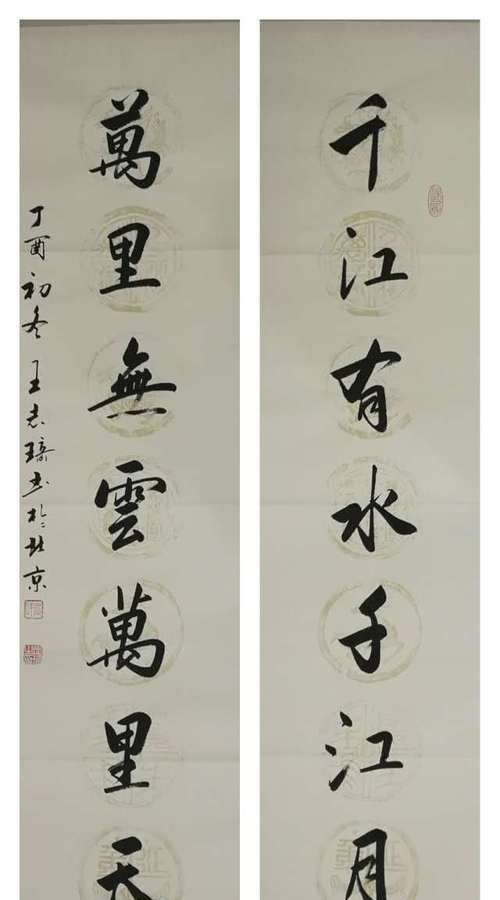 千江有水千江月
萬里無雲萬里天
丁酉初冬王志琦书於北京